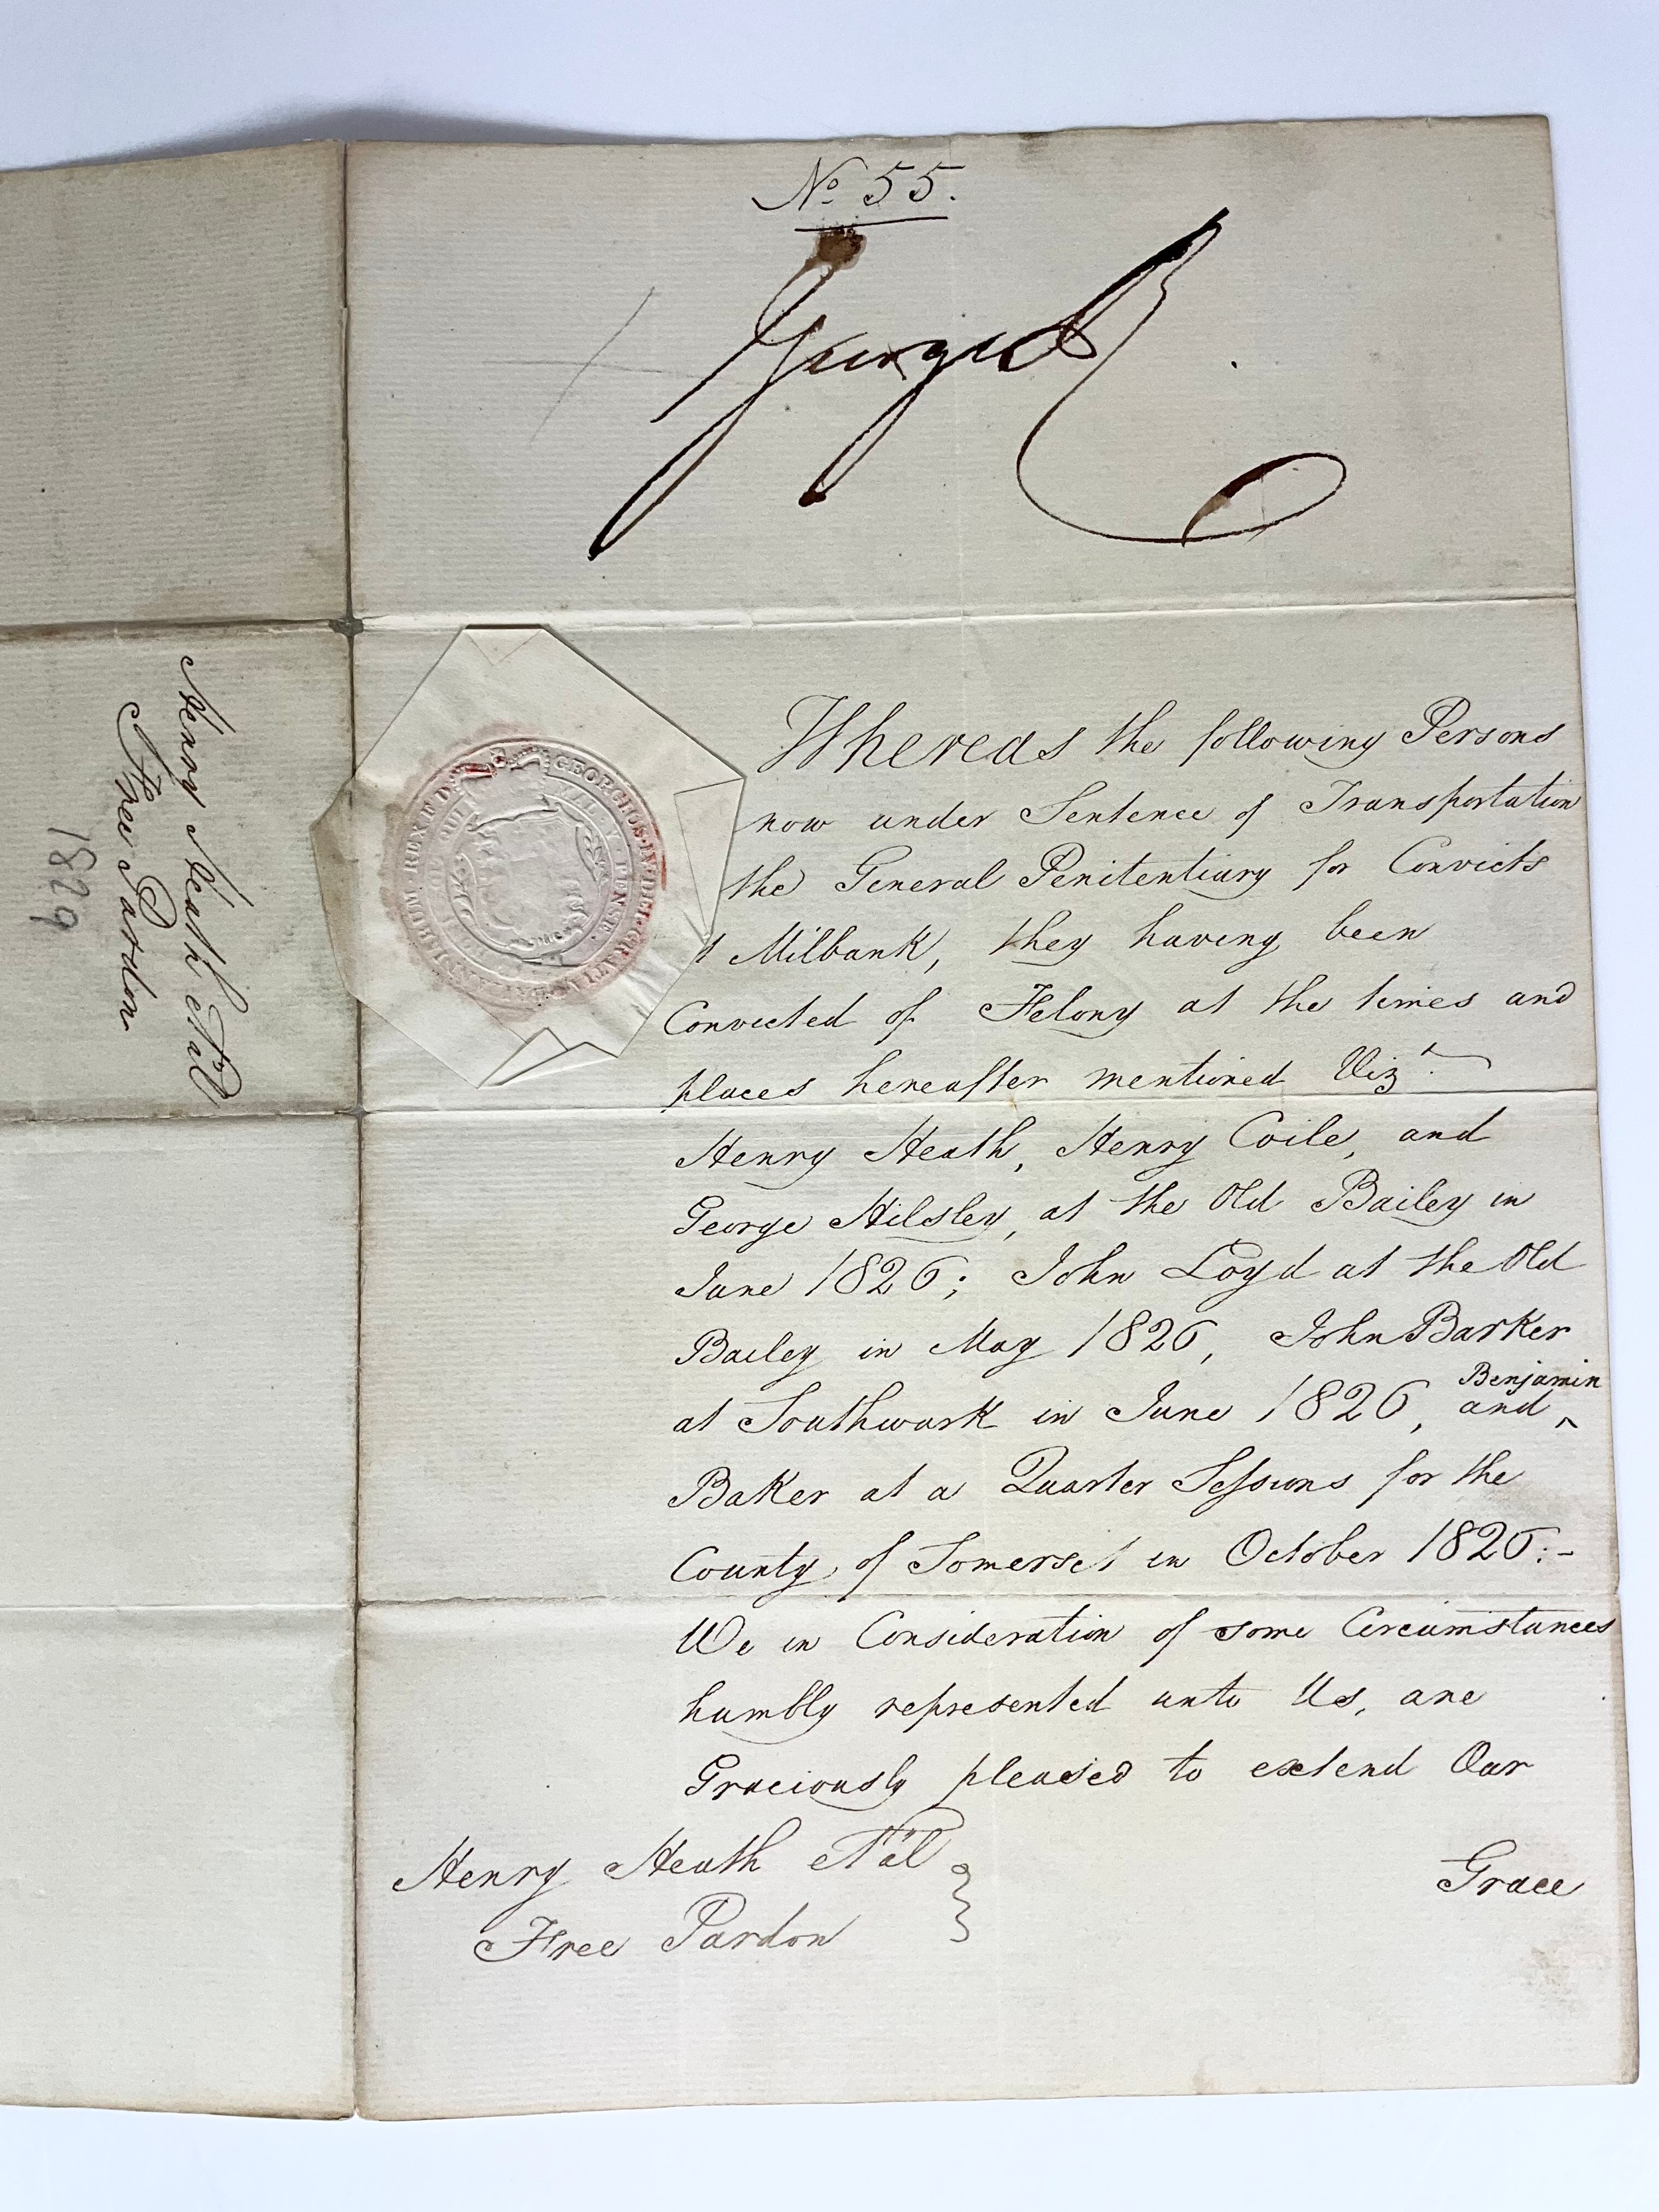 Nº 55.
George R
Whereas the following Persons
now under Sentence of Transportation
the General Penitentiary for Convicts
Milbank, they having been
Convicted of Felony at the times and
places hereafter mentioned Vizt.
Henry Heath, Henry Coile, and
George Hilsley, at the Old Bailey in
June 1826; John Loyd at the Old
Bailey in May 1826, John Barker
at Southwark in June 1826, and ^ Benjamin
Baker at a Quarter Sessions for the
County of Somerset in October 1826:-
We in Consideration of some Circumstances
humbly represented unto Us, are
Graciously pleased to extend Our
Grace
Henry Heath et al
Free Pardon
Henry Heath et al
Free Pardon
1829
GEORGIUS IV DEI GRATIA REX F D